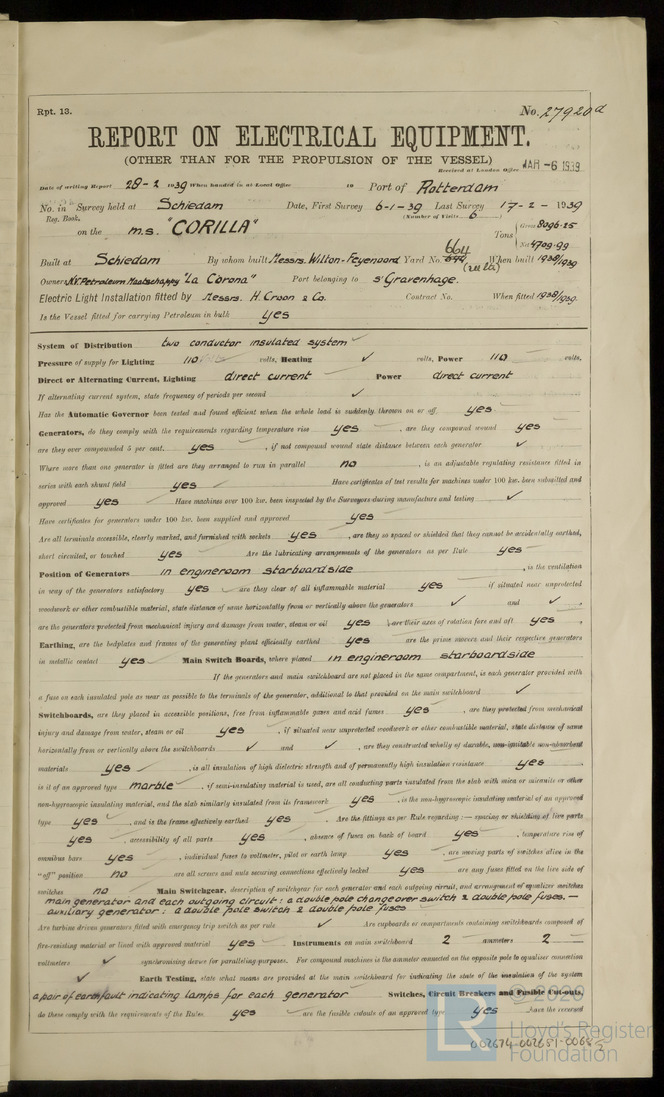 Rpt. 13.
No. 27920d
REPORT ON ELECTRICAL EQUIPMENT.
(OTHER THAN FOR THE PROPULSION OF THE VESSEL)
Received at London Office MAR -6 1939
Date of writing Report 28-2 1939 When handed in at Local Office 19 Port of Rotterdam
No. in Survey held at Schiedam Date, First Survey 6-1-39 Last Survey 17-2-1939
Reg. Book. (Number of Visits 6)
on the m.s. "CORILLA" Tons Gross 8096.25 Net 4709.99
Built at Schiedam By whom built Messrs. Wilton-Feyenoord Yard No. 664 When built 1938/1939
Owners N.V. Petroleum Maatschappy "La Corona" Port belonging to s'Gravenhage.
Electric Light Installation fitted by Messrs. H. Croon & Co. Contract No. When fitted 1938/1939.
Is the Vessel fitted for carrying Petroleum in bulk yes
System of Distribution two conductor insulated system ✓
Pressure of supply for Lighting 110 volts, Heating ✓ volts, Power 110 volts,
Direct or Alternating Current, Lighting direct current Power direct current
If alternating current system, state frequency of periods per second ✓
Has the Automatic Governor been tested and found efficient when the whole load is suddenly thrown on or off yes
Generators, do they comply with the requirements regarding temperature rise yes , are they compound wound yes
are they over compounded 5 per cent. yes , if not compound wound state distance between each generator ✓
Where more than one generator is fitted are they arranged to run in parallel no , is an adjustable regulating resistance fitted in
series with each shunt field yes Have certificates of test results for machines under 100 kw. been submitted and
approved yes Have machines over 100 kw. been inspected by the Surveyors during manufacture and testing ✓
Have certificates for generators under 100 kw. been supplied and approved yes
Are all terminals accessible, clearly marked, and furnished with sockets yes , are they so spaced or shielded that they cannot be accidentally earthed,
short circuited, or touched yes Are the lubricating arrangements of the generators as per Rule yes
Position of Generators in engineroom starboardside , is the ventilation
in way of the generators satisfactory yes are they clear of all inflammable material yes if situated near unprotected
woodwork or other combustible material, state distance of same horizontally from or vertically above the generators ✓ and ✓ ,
are the generators protected from mechanical injury and damage from water, steam or oil yes , are their axes of rotation fore and aft yes
Earthing, are the bedplates and frames of the generating plant efficiently earthed yes are the prime movers and their respective generators
in metallic contact yes Main Switch Boards, where placed in engineroom starboardside
If the generators and main switchboard are not placed in the same compartment, is each generator provided with
a fuse on each insulated pole as near as possible to the terminals of the generator, additional to that provided on the main switchboard ✓
Switchboards, are they placed in accessible positions, free from inflammable gases and acid fumes yes , are they protected from mechanical
injury and damage from water, steam or oil yes , if situated near unprotected woodwork or other combustible material, state distance of same
horizontally from or vertically above the switchboards ✓ and ✓ , are they constructed wholly of durable, non-ignitable non-absorbent
materials yes , is all insulation of high dielectric strength and of permanently high insulation resistance yes
is it of an approved type marble , if semi-insulating material is used, are all conducting parts insulated from the slab with mica or micanite or other
non-hygroscopic insulating material, and the slab similarly insulated from its framework yes , is the non-hygroscopic insulating material of an approved
type yes , and is the frame effectively earthed yes . Are the fittings as per Rule regarding :— spacing or shielding of live parts
yes , accessibility of all parts yes , absence of fuses on back of board yes , temperature rise of
omnibus bars yes , individual fuses to voltmeter, pilot or earth lamp yes , are moving parts of switches alive in the
"off" position no are all screws and nuts securing connections effectively locked yes are any fuses fitted on the live side of
switches no Main Switchgear, description of switchgear for each generator and each outgoing circuit, and arrangement of equalizer switches
main generator and each outgoing circuit : a double pole change over switch & double pole fuses.—
auxiliary generator : a double pole switch & double pole fuses
Are turbine driven generators fitted with emergency trip switch as per rule ✓ Are cupboards or compartments containing switchboards composed of
fire-resisting material or lined with approved material yes Instruments on main switchboard 2 ammeters 2
voltmeters ✓ synchronising device for paralleling purposes. For compound machines is the ammeter connected on the opposite pole to equaliser connection
✓ Earth Testing, state what means are provided at the main switchboard for indicating the state of the insulation of the system
a pair of earthfault indicating lamps for each generator Switches, Circuit Breakers and Fusible Cut-outs,
do these comply with the requirements of the Rules yes are the fusible cutouts of an approved type yes , have the reversed
© 2020
Lloyd's Register
Foundation